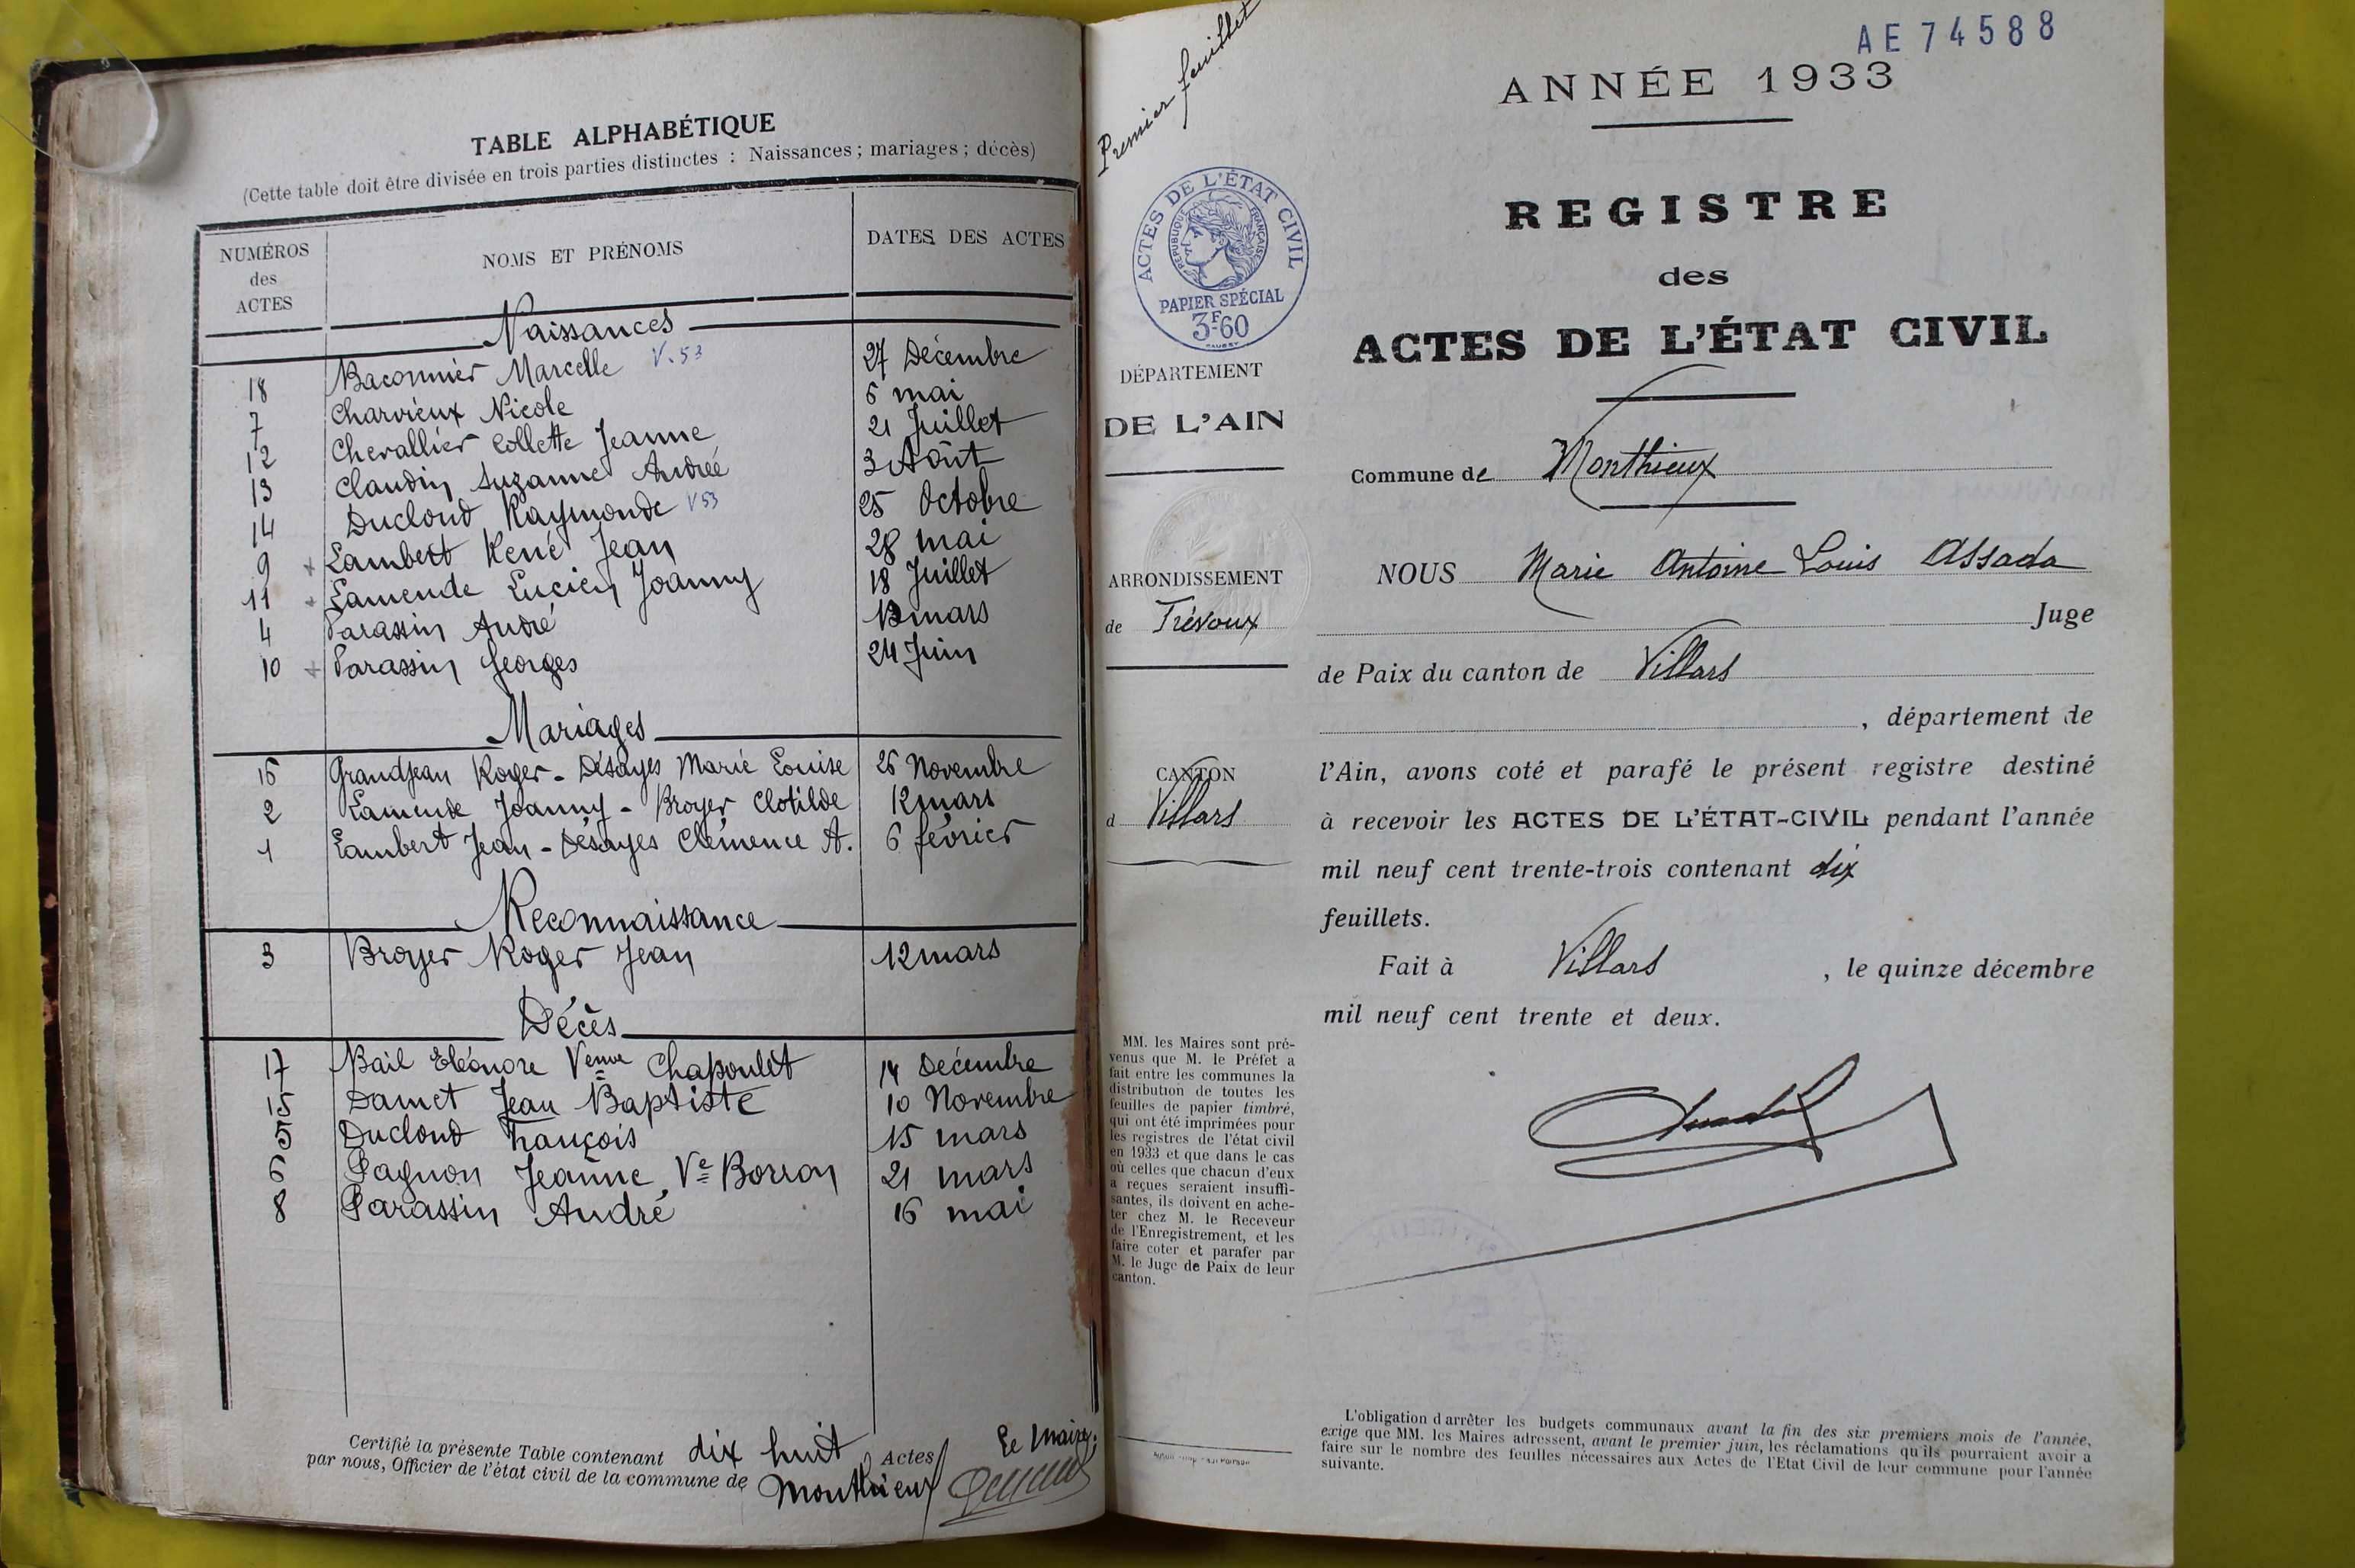 TABLE ALPHABÉTIQUE
(Cette table doit être divisée en trois parties distinctes : Naissances ; mariages ; décès)
NUMÉROS des ACTES NOMS ET PRÉNOMS DATES DES ACTES
Naissances
18 Baconnier Marcelle V.53 27 Décembre
7 Charvieux Nicole 6 mai
12 Chevallier Collette Jeanne 21 Juillet
13 Claudin Suzanne Andrée 3 Août
14 Ducloud Raymonde V53 25 Octobre
9 + Lambert René Jean 28 mai
11 + Lamende Lucien Joanny 18 Juillet
4 Parassin André 13 mars
10 + Parassin Georges 24 Juin
Mariages
16 Grandjean Roger - Désayes Marie Louise 26 Novembre
2 Lamende Joanny - Broyer Clotilde 12 mars
1 Lambert Jean - Désayes Clémence A. 6 février
Reconnaissance
3 Broyer Roger Jean 12 mars
Décès
17 Bail Eléonore Veuve Chapoulet 14 Décembre
15 Damet Jean Baptiste 10 Novembre
5 Ducloud François 15 mars
6 Pagnon Jeanne Ve Borron 21 mars
8 Parassin André 16 mai
Certifié la présente Table contenant dix huit Actes
par nous, Officier de l'état civil de la commune de Monthieux
Le Maire,
Premier feuillet
AE 74588
ANNÉE 1933
REGISTRE
des
ACTES DE L'ÉTAT CIVIL
ACTES DE L'ÉTAT CIVIL
RÉPUBLIQUE FRANÇAISE
PAPIER SPÉCIAL
3F60
DÉPARTEMENT
DE L'AIN
Commune de Monthieux
ARRONDISSEMENT
de Trévoux
CANTON
d Villars
NOUS Marie Antoine Louis Assada
Juge
de Paix du canton de Villars
, département de
l'Ain, avons coté et parafé le présent registre destiné
à recevoir les ACTES DE L'ÉTAT-CIVIL pendant l'année
mil neuf cent trente-trois contenant dix
feuillets.
Fait à Villars, le quinze décembre
mil neuf cent trente et deux.
MM. les Maires sont pré-
venus que M. le Préfet a
fait entre les communes la
distribution de toutes les
feuilles de papier timbré,
qui ont été imprimées pour
les registres de l'état civil
en 1933 et que dans le cas
où celles que chacun d'eux
a reçues seraient insuffi-
santes, ils doivent en ache-
ter chez M. le Receveur
de l'Enregistrement, et les
faire coter et parafer par
M. le Juge de Paix de leur
canton.
L'obligation d'arrêter les budgets communaux avant la fin des six premiers mois de l'année,
exige que MM. les Maires adressent, avant le premier juin, les réclamations qu'ils pourraient avoir à
faire sur le nombre des feuilles nécessaires aux Actes de l'Etat Civil de leur commune pour l'année
suivante.